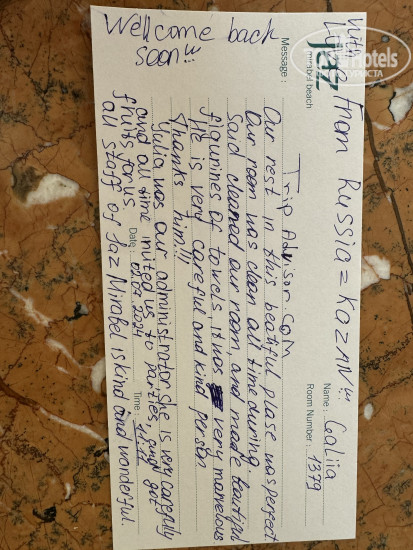 With love from Russia Kazan!!!
Jaz
mirabel beach
Name : Galiia
Room Number : 1379
Message :
Trip Advisor.com
Our rest in this beautiful plase was perfect
Our room was clean all time during
Said cleaned our room, and made beautiful
figurines of towels it was very marvelous
He is very careful and kind person
Thanks him!!!
Julia was our administrator. She is very carefully
and all time invited us to parties and got
fruits for us
Date : 03.07.2024
Time : 11:17
all staff of Jaz Mirabel is kind and wonderful.
Wellcome back
soon!!!
Hotels